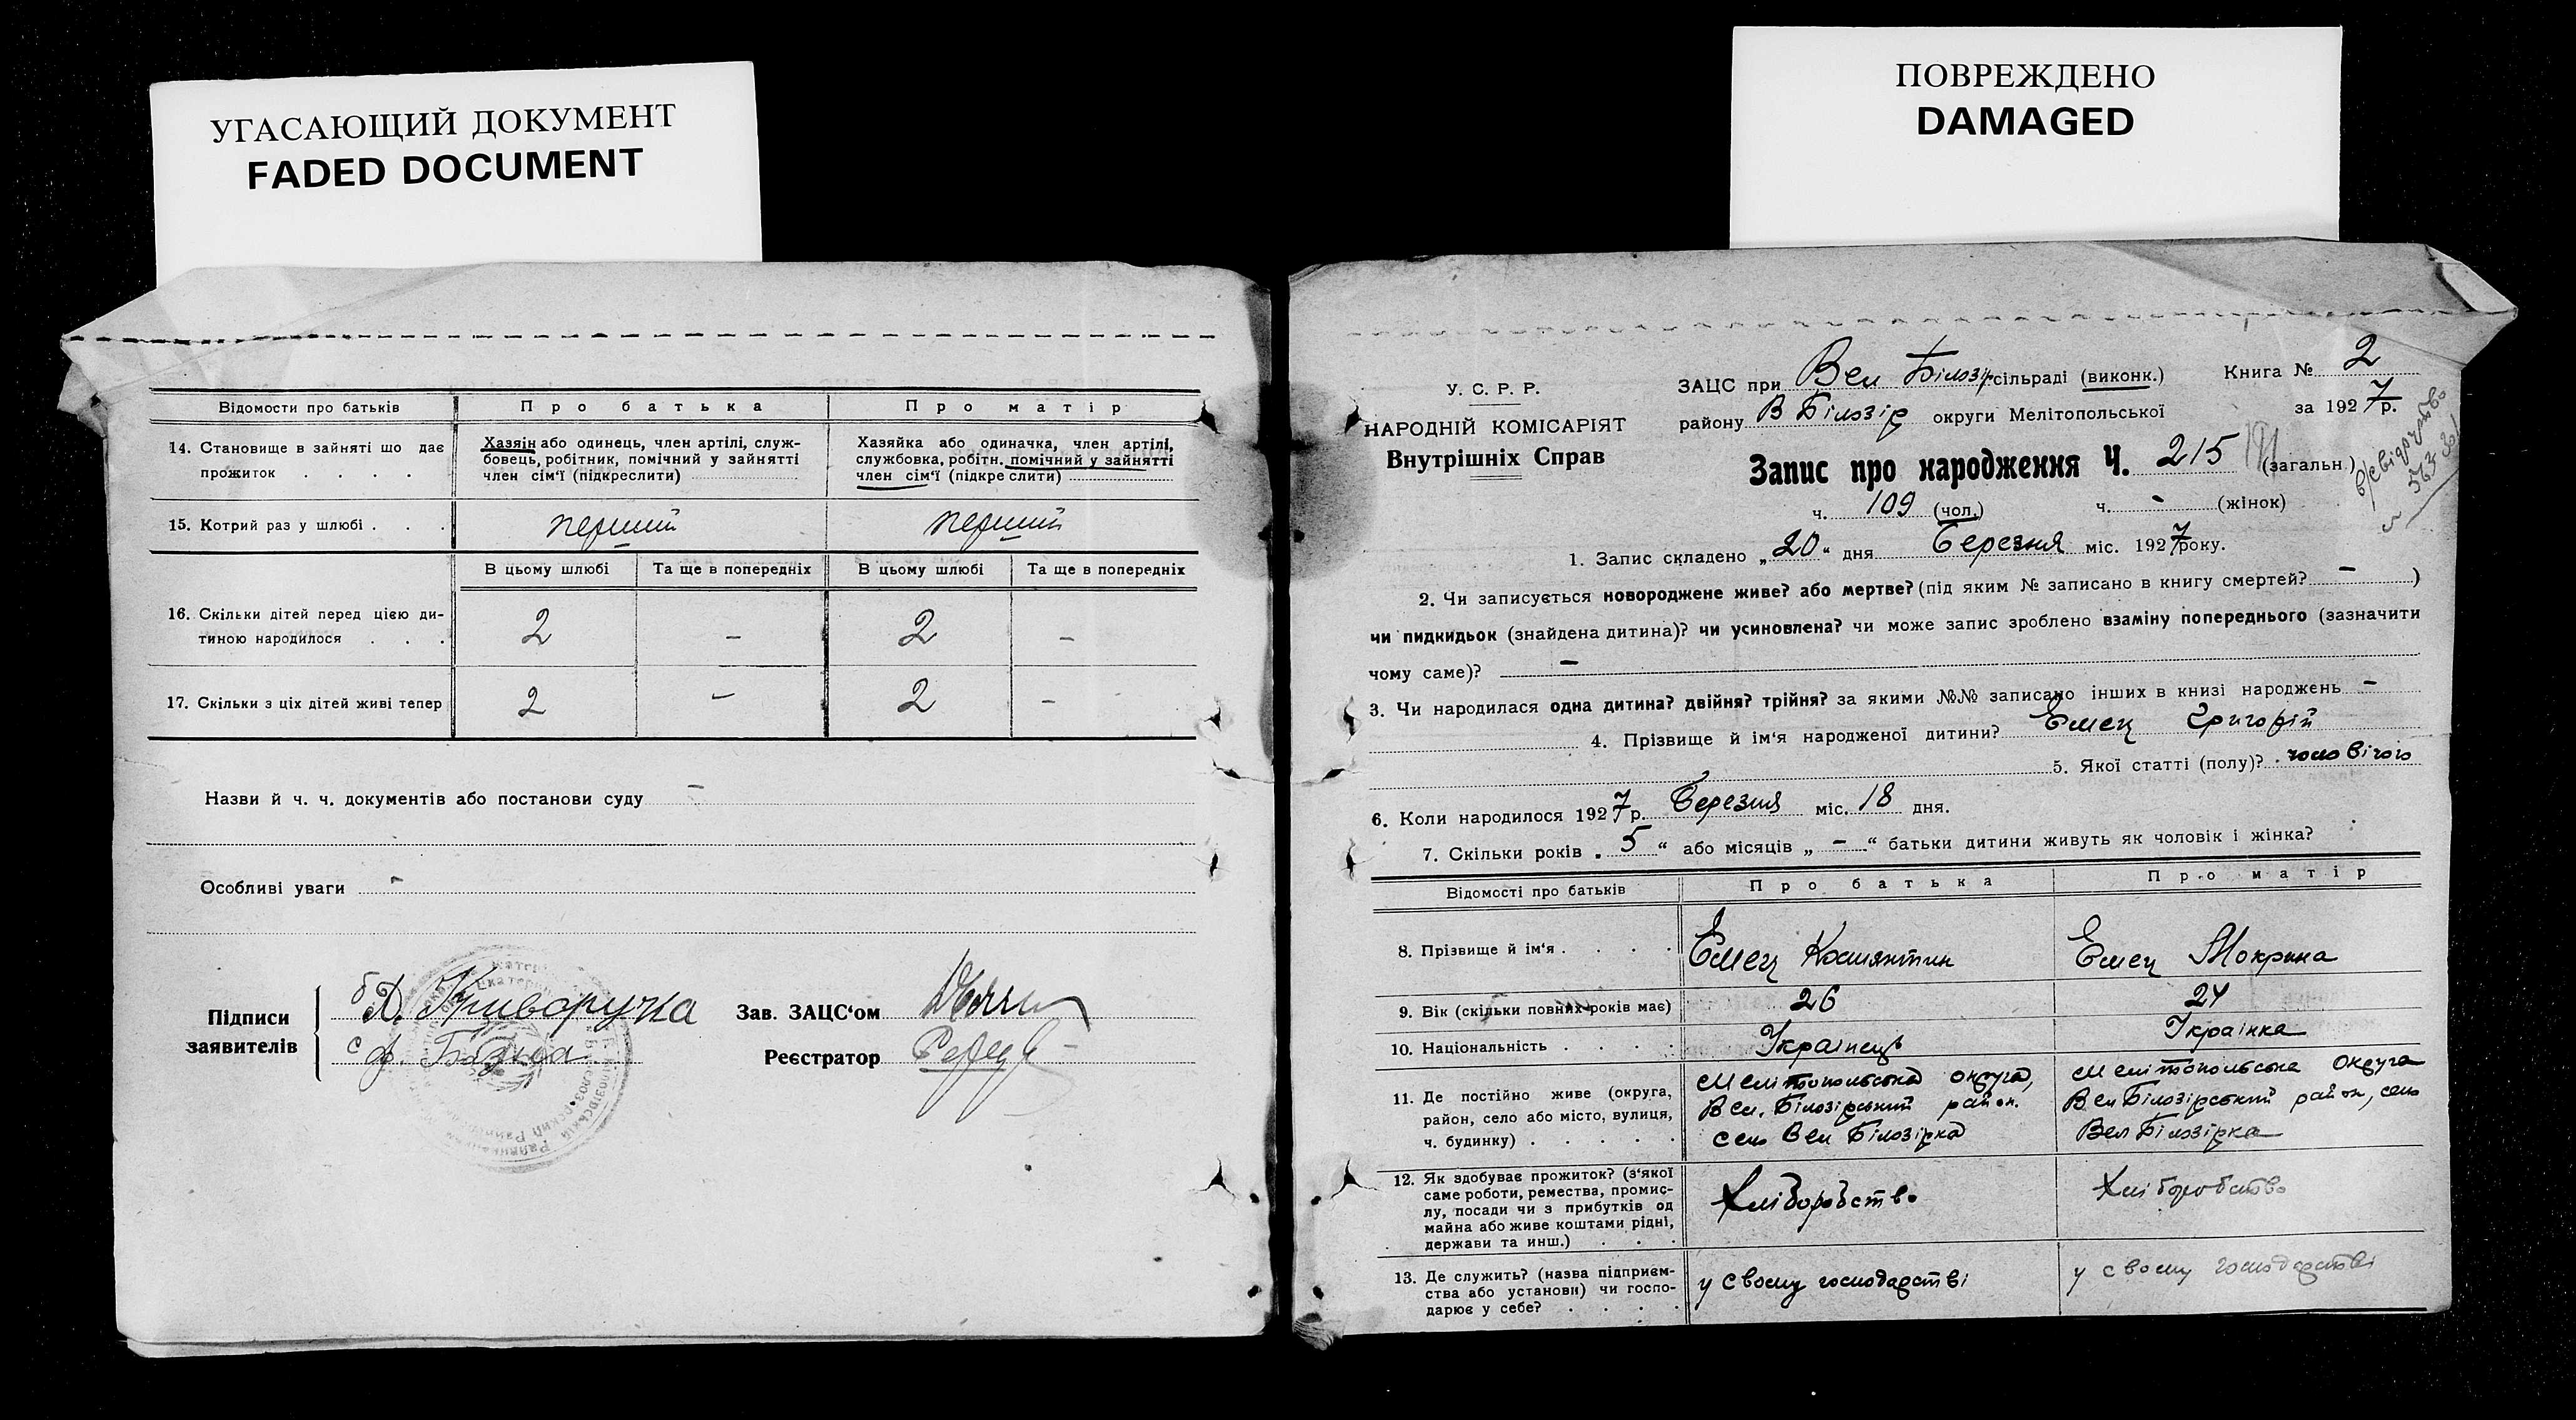 УГАСАЮЩИЙ ДОКУМЕНТ
FADED DOCUMENT
Відомости про батьків
Про батька
Про матір
14. Становище в зайняті що дає прожиток . . . .
Хазяїн або одинець, член артілі, служ-
бовець, робітник, помічний у зайнятті
член сім'ї (підкреслити)
Хазяйка або одиначка, член артілі,
службовка, робітн. помічний у зайнятті
член сім'ї (підкреслити)
15. Котрий раз у шлюбі . . .
перший
перший
В цьому шлюбі
Та ще в попередніх
В цьому шлюбі
Та ще в попередніх
16. Скільки дітей перед цією ди-
тиною народилося . . .
2 - 2 -
17. Скільки з ціх дітей живі тепер
2 - 2 -
Назви й ч. ч. документів або постанови суду -
Особливі уваги -
Підписи
заявителів
Д. Криворучка
Зав. ЗАЦС'ом
Реєстратор
ПОВРЕЖДЕНО
DAMAGED
У. С. Р. Р.
НАРОДНІЙ КОМІСАРІЯТ
Внутрішніх Справ
ЗАЦС при Вел Білозір. сільраді (виконк.)
Книга № 2
району В Білозір округи Мелітопольської
за 1927 р.
Запис про народження Ч. 215 (загальн.)
ч. 109 (чол.) ч. - (жінок)
1. Запис складено „20" дня Березня міс. 1927 року.
2. Чи записується новороджене живе? або мертве? (під яким № записано в книгу смертей? - )
чи пидкидьок (знайдена дитина)? чи усиновлена? чи може запис зроблено взаміну попереднього (зазначити
чому саме)? -
3. Чи народилася одна дитина? двійня? трійня? за якими №№ записано інших в книзі народжень -
4. Прізвище й ім'я народженої дитини? Емец Григорій
5. Якої статті (полу)? чоловічого
6. Коли народилося 1927 р. Березня міс. 18 дня.
7. Скільки років „5" або місяців „-" батьки дитини живуть як чоловік і жінка?
Відомості про батьків
Про батька
Про матір
8. Прізвище й ім'я . . . .
Емец Костянтин
Емец Мокрина
9. Вік (скільки повних років має)
26
24
10. Національність . . . .
Українець
Українка
11. Де постійно живе (округа,
район, село або місто, вулиця,
ч. будинку) . . . . .
Мелітопольська округа,
Вел. Білозірський район.
село Вел Білозірка
Мелітопольська округа
Вел Білозірський район, село
Вел Білозірка
12. Як здобуває прожиток? (з'якої
саме роботи, ремества, промис-
лу, посади чи з прибутків од
майна або живе коштами рідні,
держави та инш.) . . .
Хліборобство
Хліборобство
13. Де служить? (назва підприєм-
ства або установи) чи госпо-
дарює у себе? . . . .
у своему господарстві
у своему господарстві